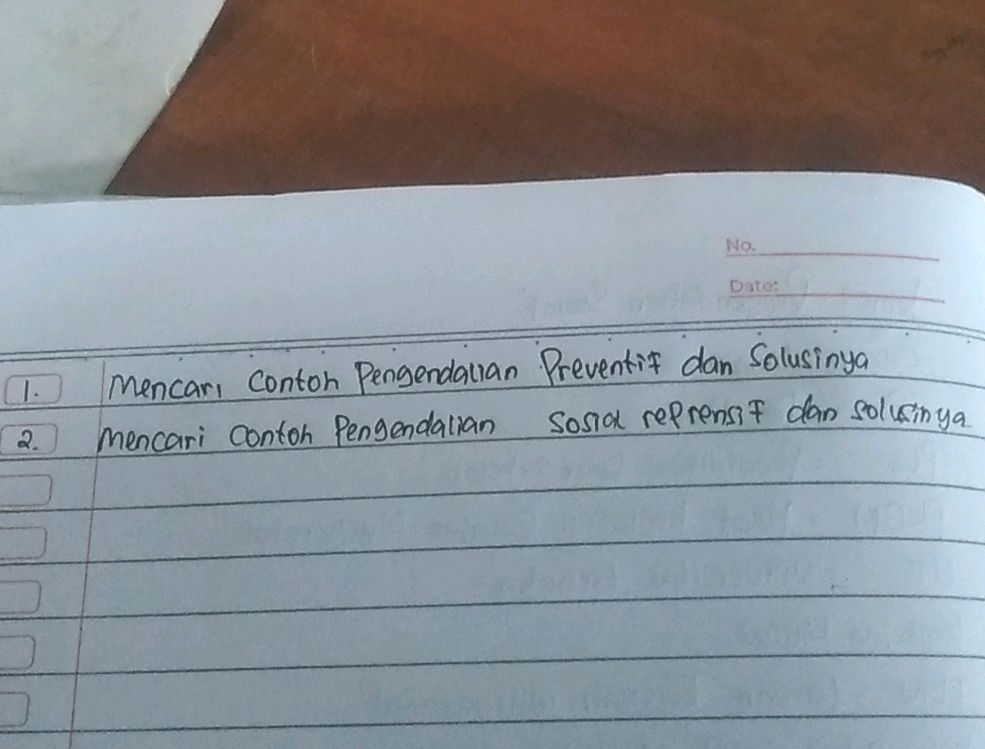 No.
Date:
1. Mencari Contoh Pengendalian Preventif dan Solusinya
2. Mencari Contoh Pengendalian Sosial reprensif dan solusinya